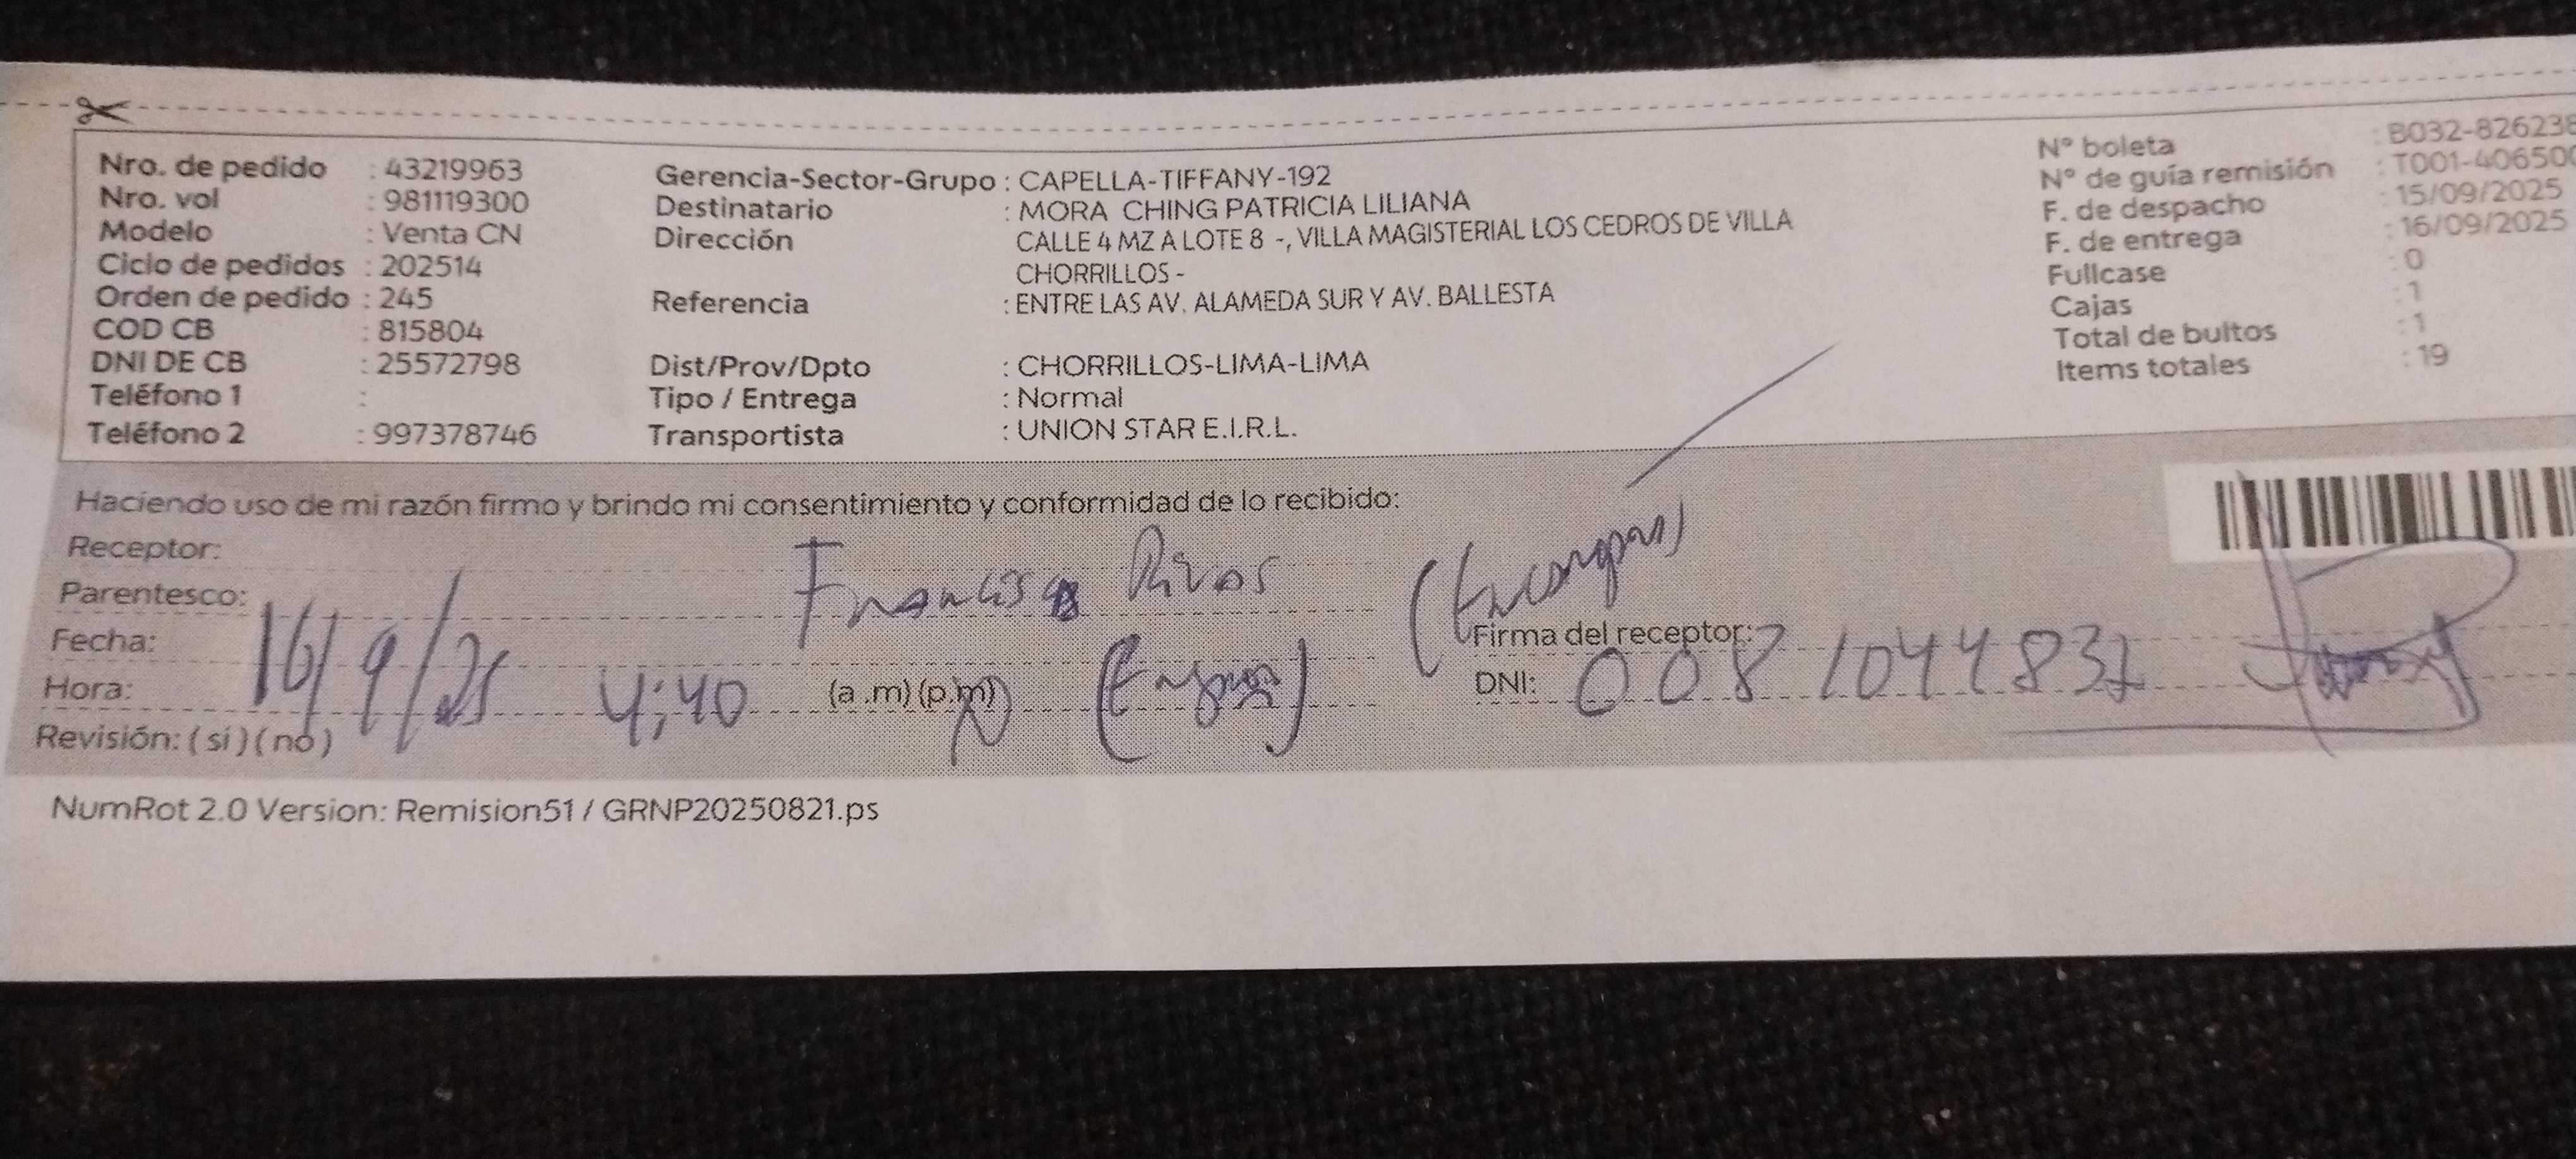 Nro. de pedido : 43219963
Nro. vol : 981119300
Modelo : Venta CN
Ciclo de pedidos : 202514
Orden de pedido : 245
COD CB : 815804
DNI DE CB : 25572798
Teléfono 1 :
Teléfono 2 : 997378746
Gerencia-Sector-Grupo : CAPELLA-TIFFANY-192
Destinatario : MORA CHING PATRICIA LILIANA
Dirección : CALLE 4 MZ A LOTE 8 -, VILLA MAGISTERIAL LOS CEDROS DE VILLA
CHORRILLOS -
Referencia : ENTRE LAS AV. ALAMEDA SUR Y AV. BALLESTA
Dist/Prov/Dpto : CHORRILLOS-LIMA-LIMA
Tipo / Entrega : Normal
Transportista : UNION STAR E.I.R.L.
Nº boleta : B032-826238
Nº de guía remisión : T001-406500
F. de despacho : 15/09/2025
F. de entrega : 16/09/2025
Fullcase : 0
Cajas : 1
Total de bultos : 1
Items totales : 19
Haciendo uso de mi razón firmo y brindo mi consentimiento y conformidad de lo recibido:
Receptor: Francisco Rivas
Parentesco:
Fecha: 16/9/25
Hora: 4:40 (a .m) (p.m)
Revisión: ( si ) ( no )
Firma del receptor:
DNI:
NumRot 2.0 Version: Remision51 / GRNP20250821.ps